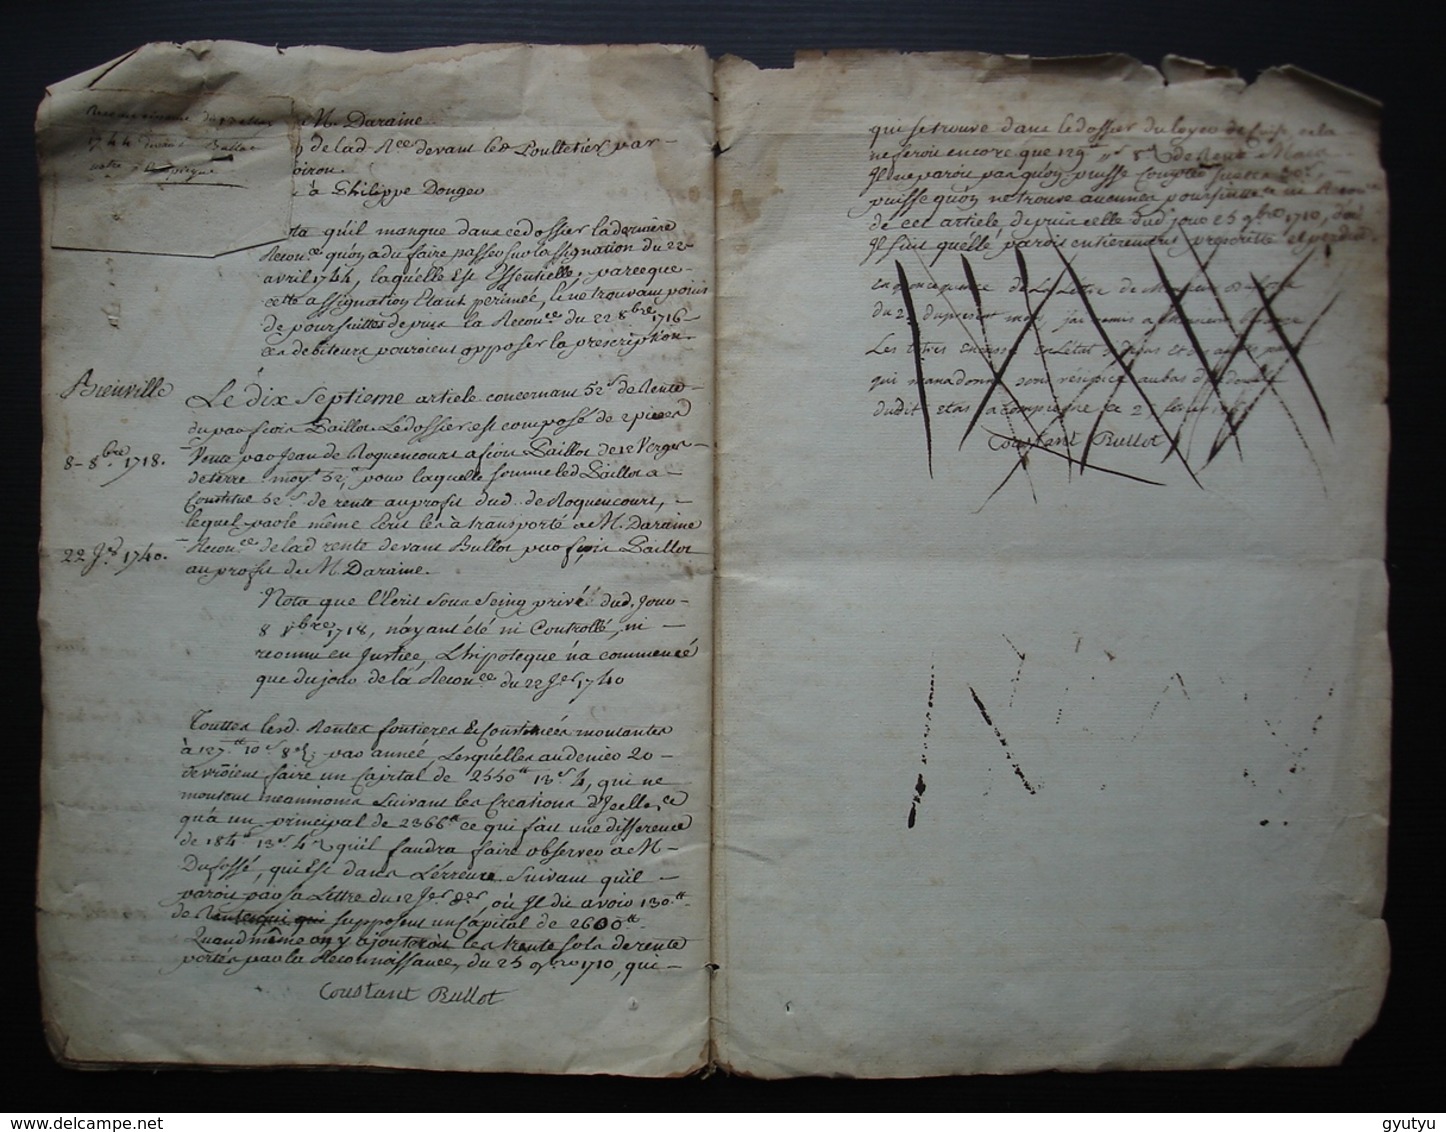 Reconnoissance du
1744 devant Bullot
notre
M. Daraine
de lad. Rce devant led Poulletier par
à Philippe Dongeo
qu'il manque dans ce dossier la derniere
Reconce quoy a du faire passer sur l'assignation du 22
avril 1744, laquélle Est Essentielle, parceque
cette assignation Etant perimée, & ne trouvant point
de poursuittes depuis la Reconce du 22 8bre 1716
les debiteurs pouroient opposer la prescription.
Bieuville
Le dix Septieme article concernant 52s de Rente
du par fcois Paillot. Le dossier est composé de 2 pieces
8 - 8bre 1718.
Vente par Jean de Roquencourt a fcois Paillot de 12 Verges
de terre moyt 52tt, pour laquelle somme led Paillot a
Constitué 52s de rente au profit dud. de Roquencourt,
lequel par le même Ecrit les à transporté a M. Daraine
22 Jer 1740.
Reconce de lad rente devant Bullot par fcois Paillot
au profit de M. Daraine.
Nota que l'Ecrit sous Seing privé dud. Jour
8 8bre 1718, n'ayant été ni Controllé, ni
reconnu en Justice, L'hipoteque n'a commencé
que du jour de la Reconce du 22 Jer 1740
Touttes lesd. Rentes foncieres & Constituées montantes
à 127tt 10s 8d par année, Lesquélles au denier 20
devroient faire un Capital de 2550tt 13s 4, qui ne
montent neanmoins Suivant les Creations d'Jcelles
qu'à un principal de 2366tt ce qui fait une difference
de 184tt 13s 4d qu'il faudra faire observer a M.
Dufossé, qui Est dans L'érreur Suivant qu'il
paroit par sa Lettre du 12 Jer der, où Jl dit avoir 130tt
de Rente qui supposent un Capital de 2600tt.
Quand même on y ajouteroit les trente sols de rente
portés par la Reconnoissance du 25 9bre 1710, qui
Constant Bullot
qui se trouve dans le dossier du
ne seroit encore que 129tt s 8d de Rente Mais
Jl ne paroit pas quoy puisse Compter sur ces 30s
puisse quoy ne trouve aucunes poursuittes ni Reconce
de cet article depuis celle dud. jour 25 9bre 1710, d'où
Jl suit quélle paroit entierement prescritte et perdue
en consequence de La Lettre de Monsieur
du 2 du present mois, j'ai remis a Monsieur
Les titres Enoncés En L'état
qui m'en a donné son résépicé au bas d'un double
dudit etat a Compiegne ce 2
Constant Bullot
gyutyu